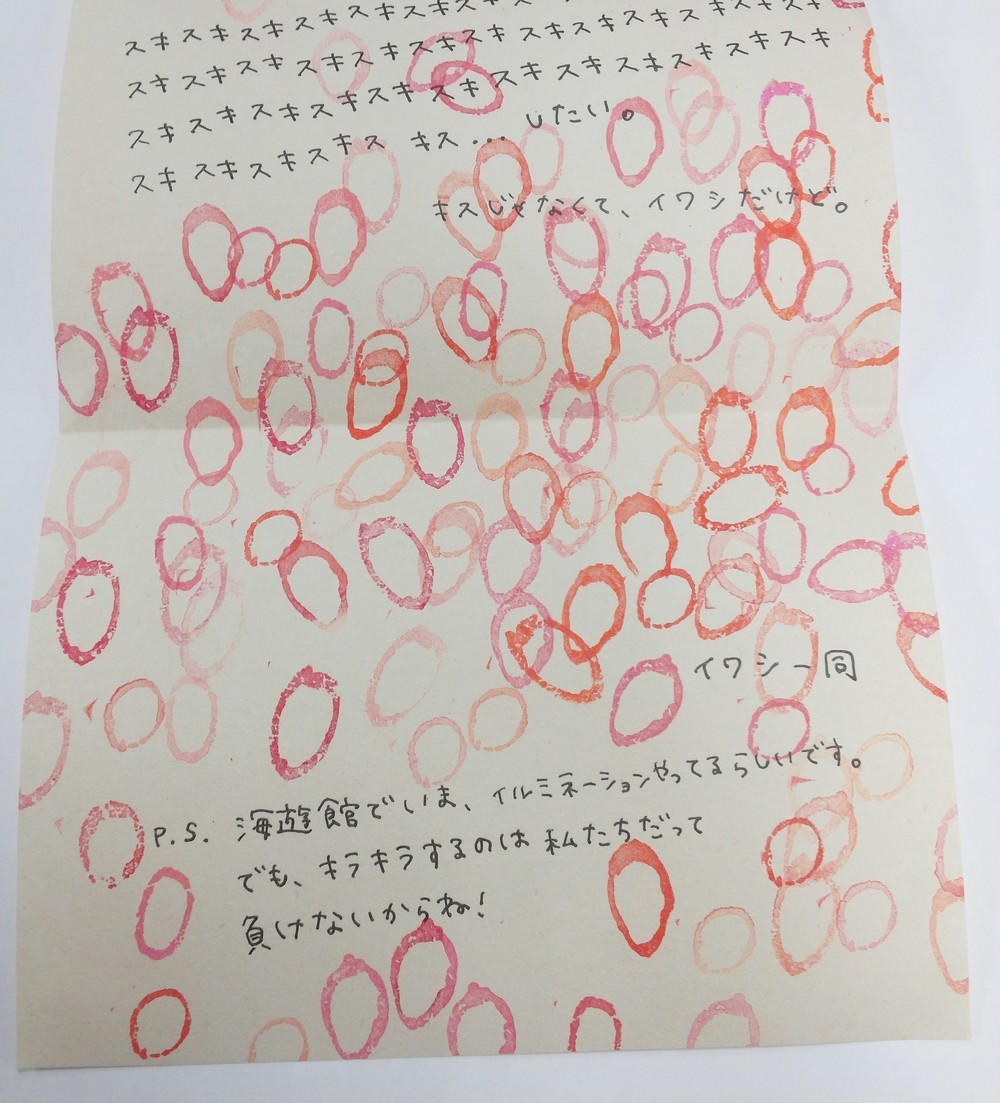 スキスキスキスキスキスキスキスキ
スキスキスキスキスキスキスキスキスキスキスキスキスキ
スキスキスキスキスキスキスキスキスキスキスキスキ
スキスキスキスキス キス... したい。
キスじゃなくて、イワシだけど。
イワシ一同
P.S. 海遊館でいま、イルミネーションやってるらしいです。
でも、キラキラするのは私たちだって
負けないからね!